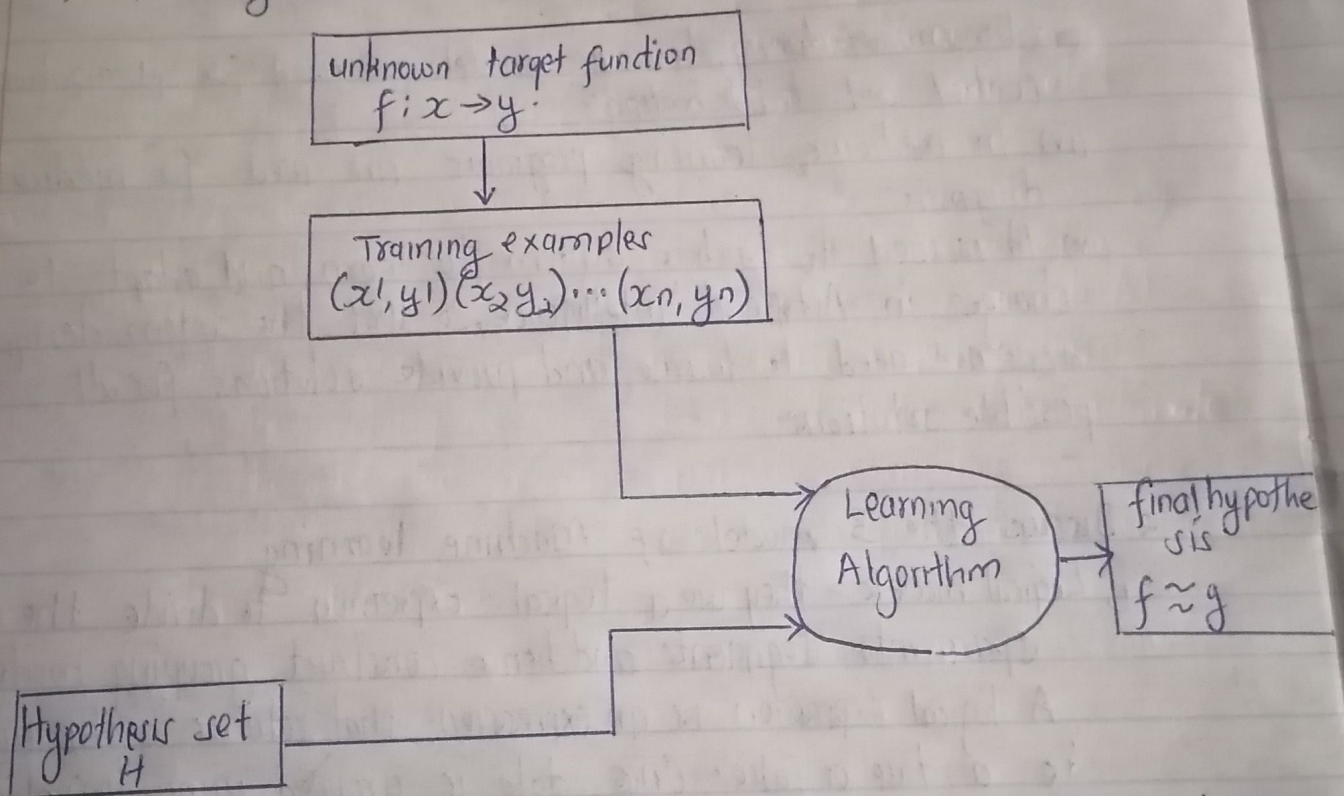 unknown target function
f : x → y .
Training examples
(x1, y1) (x2 y2) ... (xn, yn)
Learning
Algorithm
final hypothe
sis
f ≈ g
Hypothesis set
H